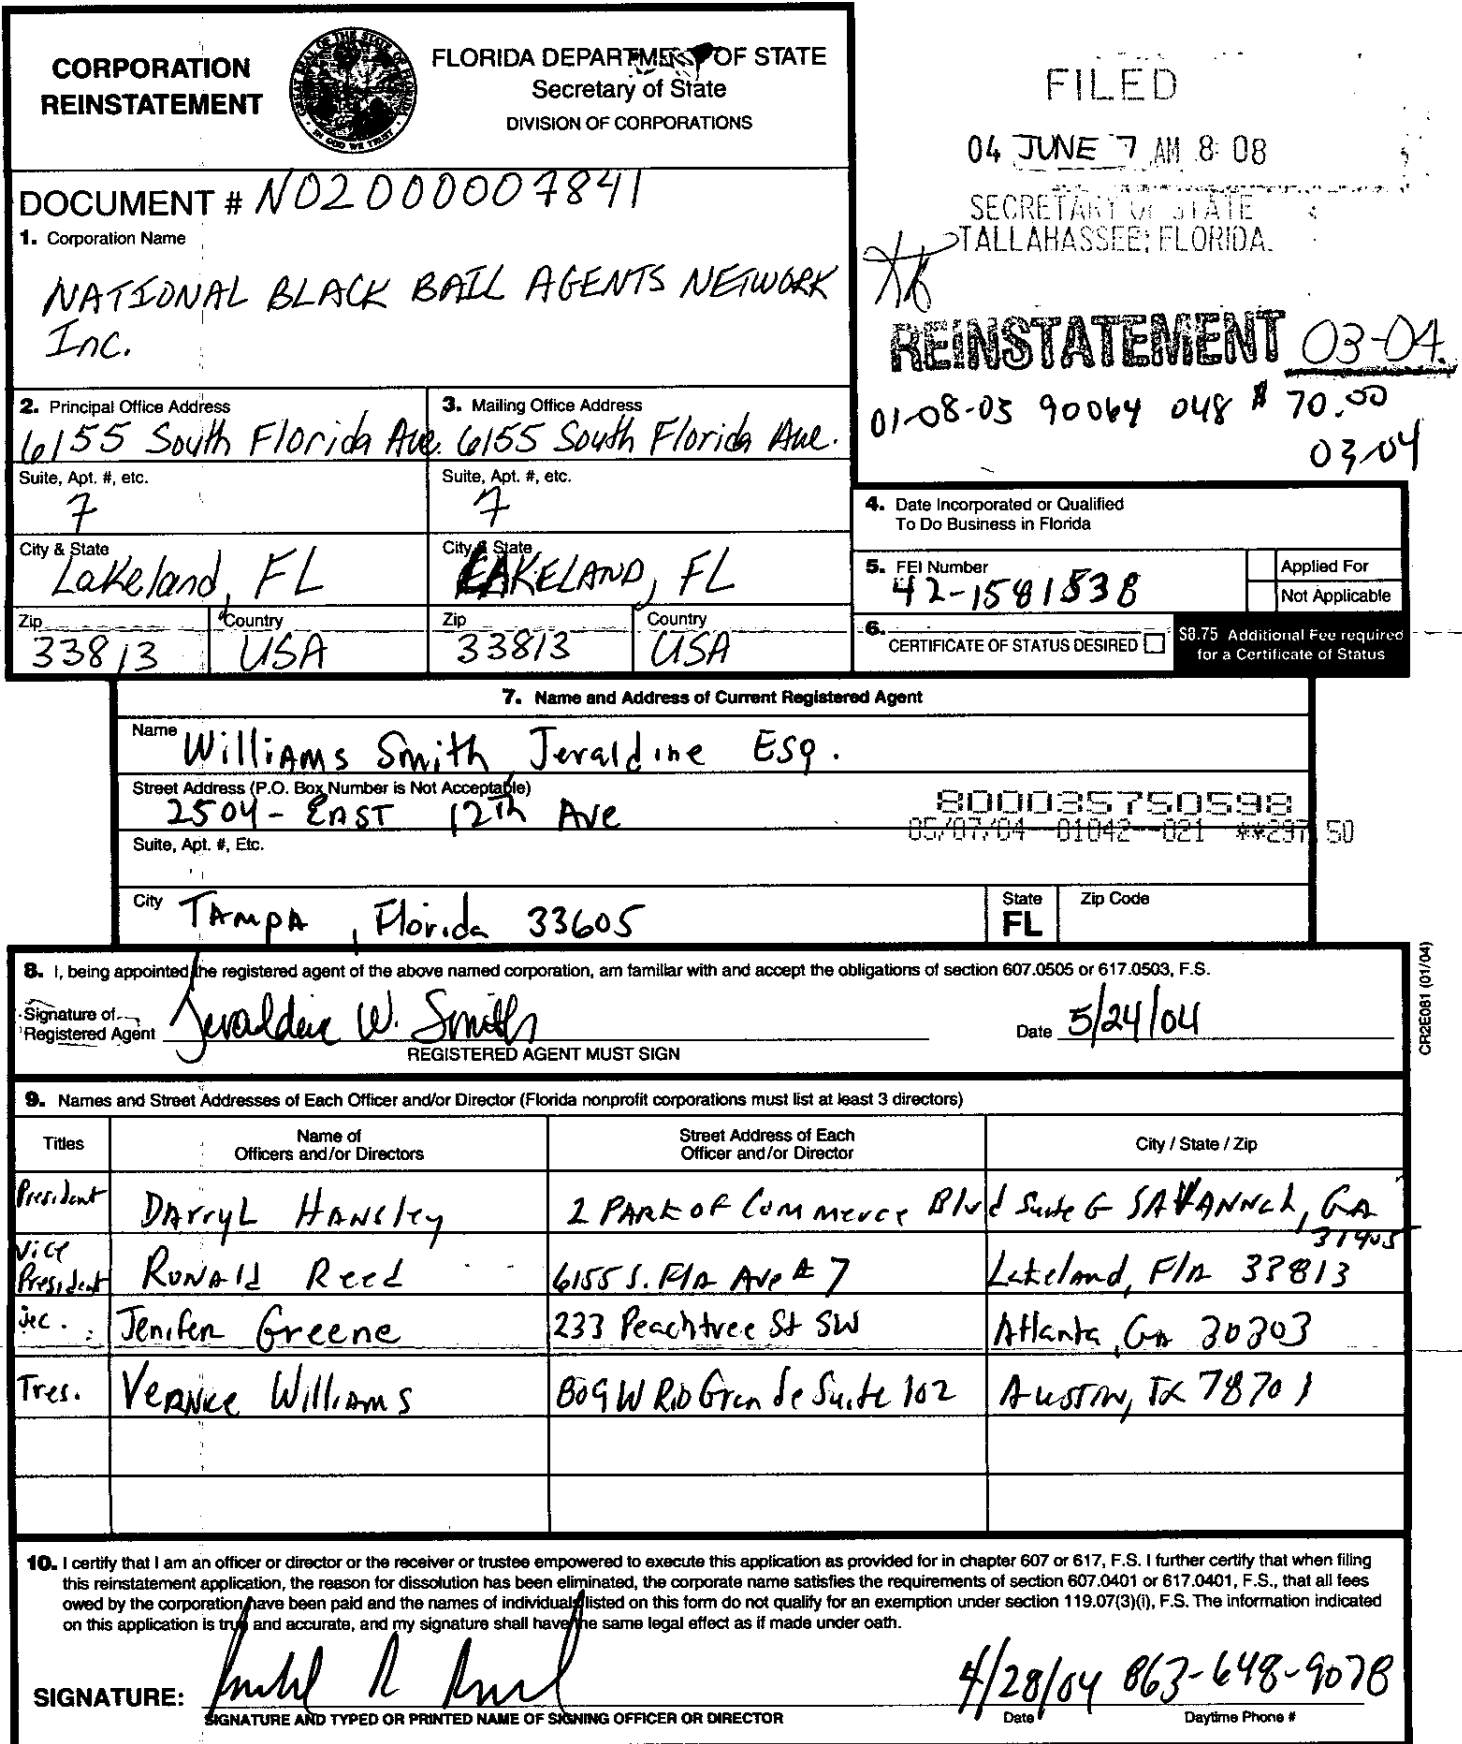 CORPORATION
REINSTATEMENT
FLORIDA DEPARTMENT OF STATE
Secretary of State
DIVISION OF CORPORATIONS
FILED
04 JUNE 7 AM 8:08
SECRETARY OF STATE
TALLAHASSEE, FLORIDA
DOCUMENT # N02000007841
1. Corporation Name
NATIONAL BLACK BAIL AGENTS NETWORK
Inc.
REINSTATEMENT 03-04
01-08-03 90064 048 $ 70.00
03-04
2. Principal Office Address
6155 South Florida Ave.
3. Mailing Office Address
6155 South Florida Ave.
Suite, Apt. #, etc.
7
Suite, Apt. #, etc.
7
City & State
Lakeland, FL
City & State
LAKELAND, FL
Zip
33813
Country
USA
Zip
33813
Country
USA
4. Date Incorporated or Qualified
To Do Business in Florida
5. FEI Number
42-1581538
Applied For
Not Applicable
6.
CERTIFICATE OF STATUS DESIRED
$8.75 Additional Fee required
for a Certificate of Status
7. Name and Address of Current Registered Agent
Name
Williams Smith, Jeraldine Esq.
Street Address (P.O. Box Number is Not Acceptable)
2504- EAST 12th Ave
800035750598
05/07/04--01042--021 **297.50
Suite, Apt. #, Etc.
City
TAMPA, Florida 33605
State
FL
Zip Code
8. I, being appointed the registered agent of the above named corporation, am familiar with and accept the obligations of section 607.0505 or 617.0503, F.S.
Signature of
Registered Agent
Jeraldine W. Smith
Date 5/24/04
REGISTERED AGENT MUST SIGN
CR2E081 (01/04)
9. Names and Street Addresses of Each Officer and/or Director (Florida nonprofit corporations must list at least 3 directors)
Titles
Name of
Officers and/or Directors
Street Address of Each
Officer and/or Director
City / State / Zip
President DArryL HANSley 2 PARK OF Commerce Blvd Suite G SAVANNah, GA
31405
Vice
President RONAld Reed 6155 S. FlA Ave # 7 Lakeland, FlA 33813
Sec. Jenifer Greene 233 Peachtree St SW Atlanta, GA 30303
Tres. VERNICE WilliAMS 809 W Rio Grande Suite 102 AUSTIN, TX 78701
10. I certify that I am an officer or director or the receiver or trustee empowered to execute this application as provided for in chapter 607 or 617, F.S. I further certify that when filing
this reinstatement application, the reason for dissolution has been eliminated, the corporate name satisfies the requirements of section 607.0401 or 617.0401, F.S., that all fees
owed by the corporation have been paid and the names of individuals listed on this form do not qualify for an exemption under section 119.07(3)(i), F.S. The information indicated
on this application is true and accurate, and my signature shall have the same legal effect as if made under oath.
SIGNATURE:
4/28/04 863-648-9078
SIGNATURE AND TYPED OR PRINTED NAME OF SIGNING OFFICER OR DIRECTOR
Date
Daytime Phone #